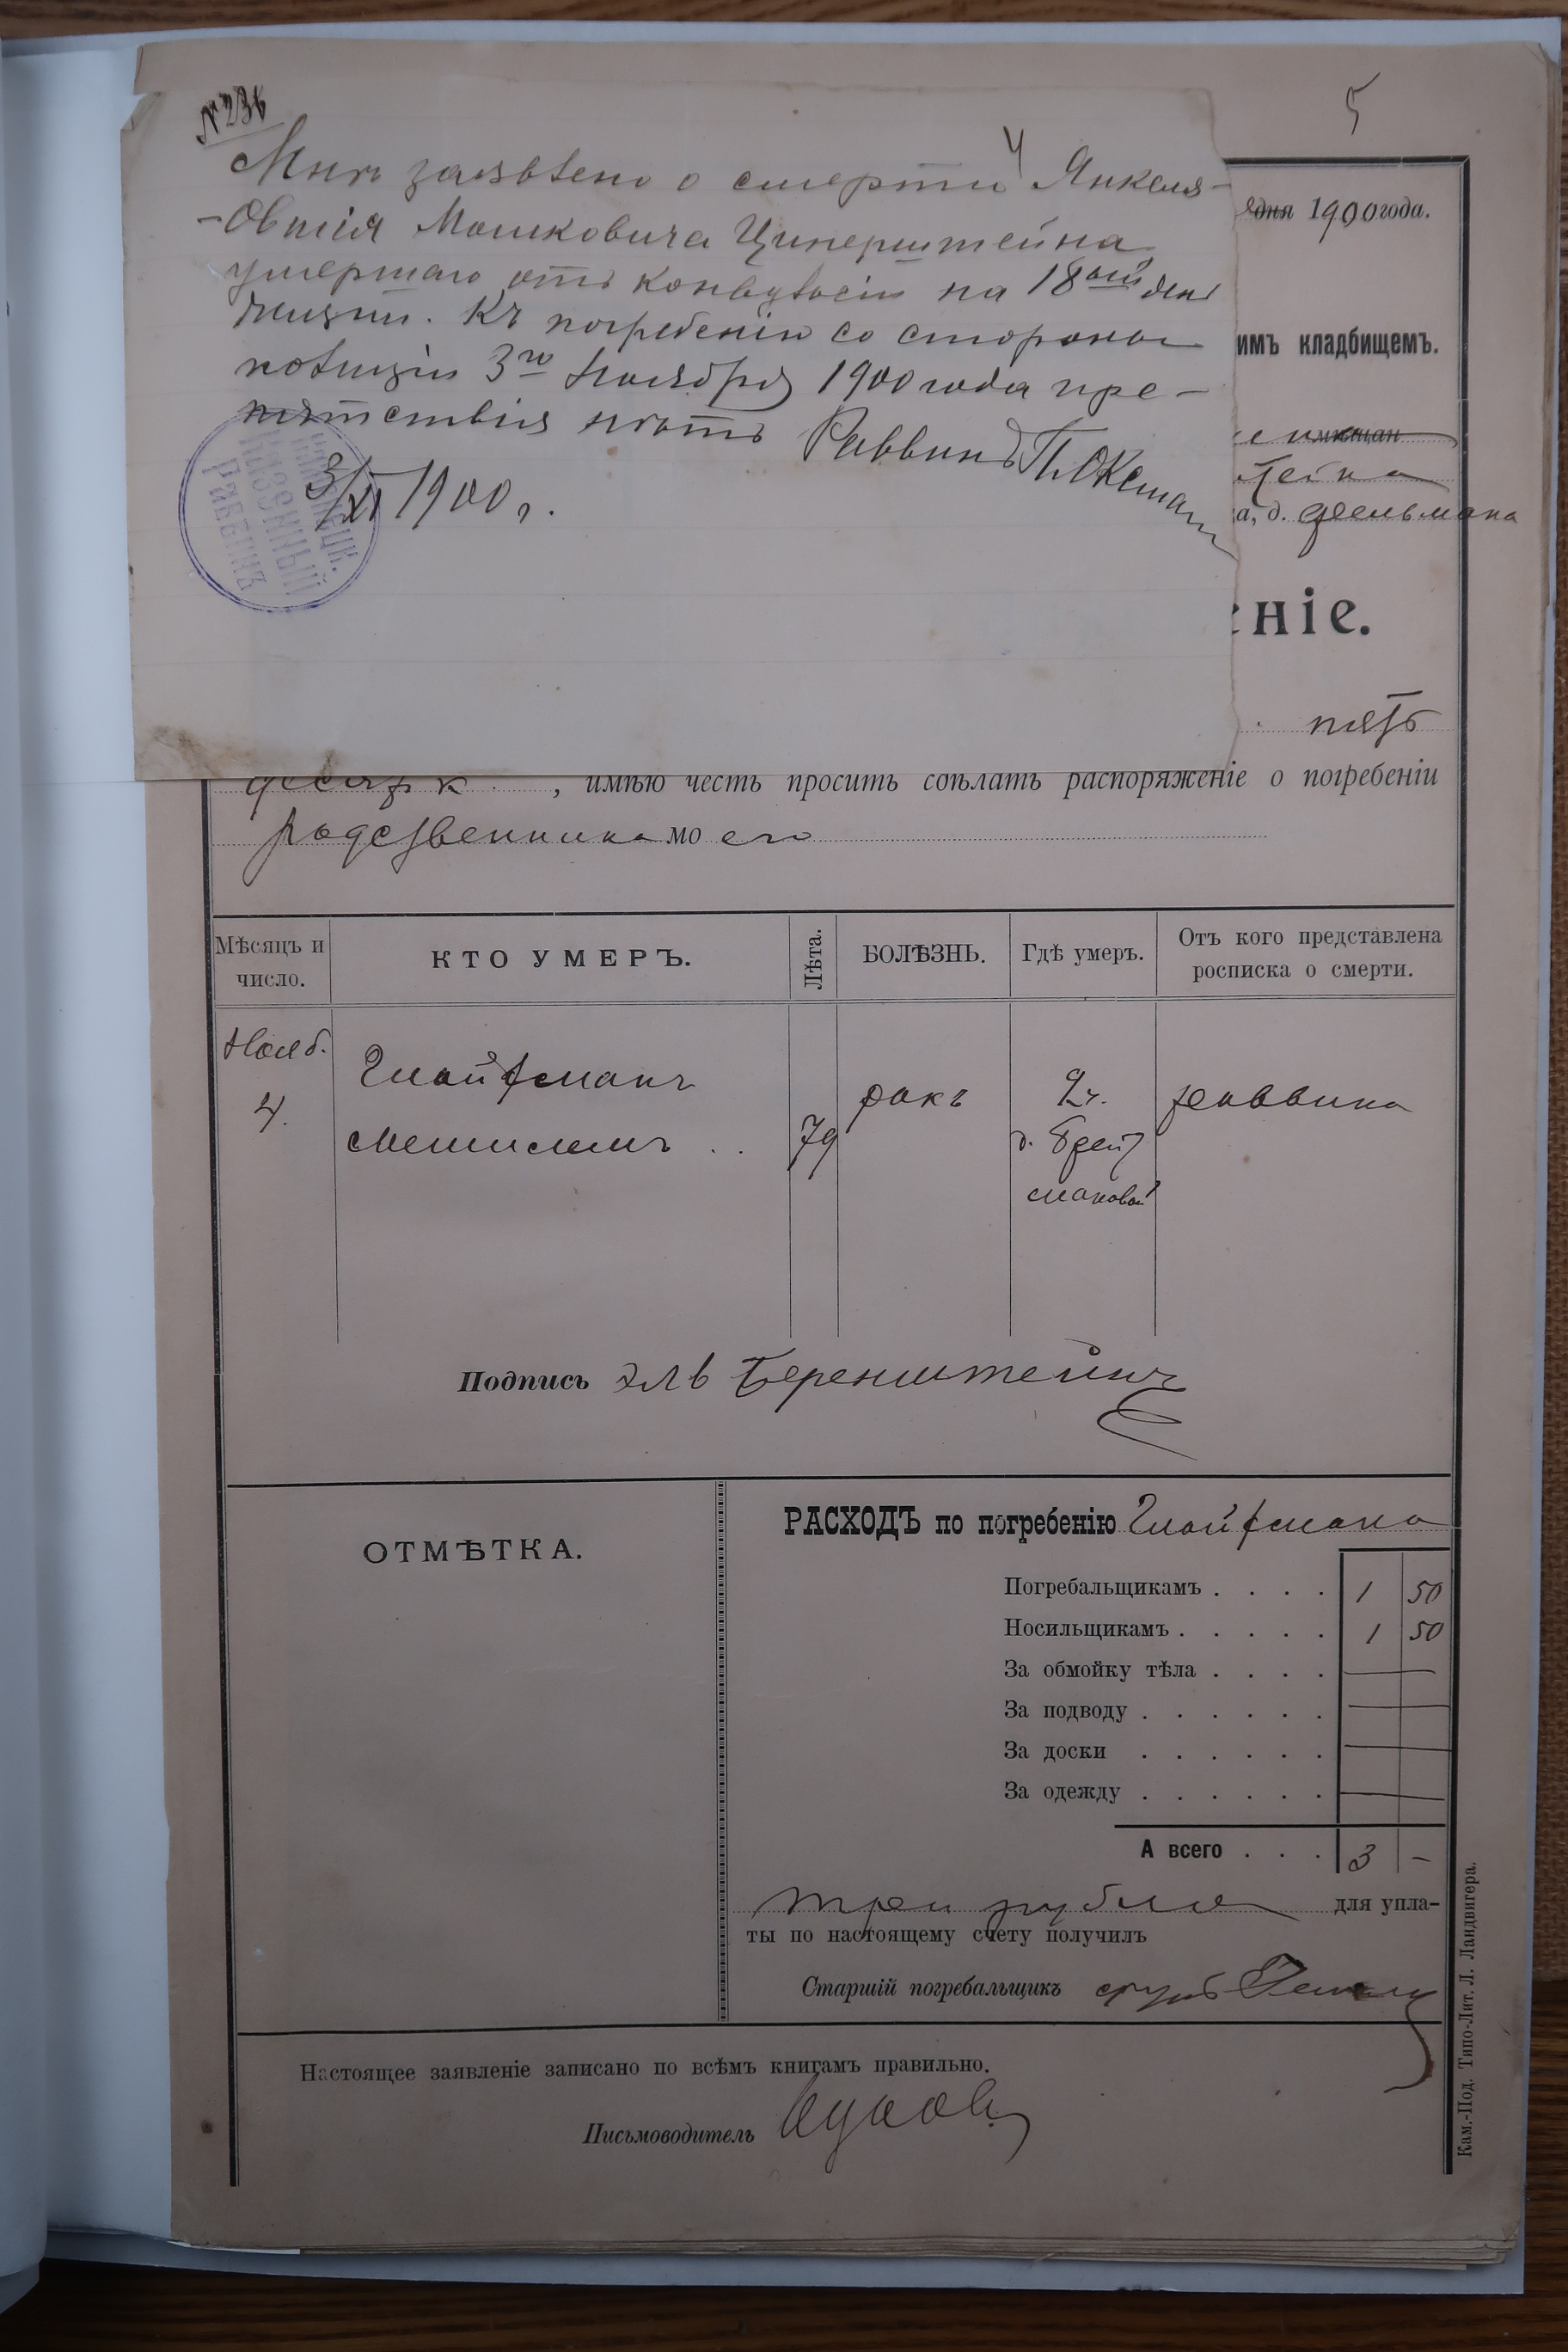 № 236
5
4
Мнѣ заявлено о смерти Янкеля-
-Овшія Мошковича Циперштейна
умершаго отъ конвульсіи на 18ый день
жизни. Къ погребенію со стороны
полиціи 3го Ноября 1900 года пре-
пятствія нѣтъ Раввинъ
3/XI 1900 г.
Казенный
Раввинъ
дня 1900 года.
имъ кладбищемъ.
мѣщан
тейна
а, д. Фельмана
ніе.
пять
десят к , имѣю честь просить сдѣлать распоряженіе о погребеніи
родственника моего
Мѣсяцъ и число.
КТО УМЕРЪ.
Лѣта.
БОЛѢЗНЬ.
Гдѣ умеръ.
Отъ кого представлена росписка о смерти.
Нояб. 4.
Глайзманъ
Мешилемъ
79
ракъ
2 ч.
д. Брейт
мановой
раввина
Подпись Эль Беренштейнъ
ОТМѢТКА.
РАСХОДЪ по погребенію Глайзмана
Погребальщикамъ . . . . 1 50
Носильщикамъ . . . . . 1 50
За обмойку тѣла . . . . —
За подводу . . . . . . —
За доски . . . . . . —
За одежду . . . . . . —
А всего . . . 3 –
три рубля для упла-
ты по настоящему счету получилъ
Старшій погребальщикъ
Настоящее заявленіе записано по всѣмъ книгамъ правильно.
Письмоводитель
Кам.-Под. Типо-Лит. Л. Ландвигера.